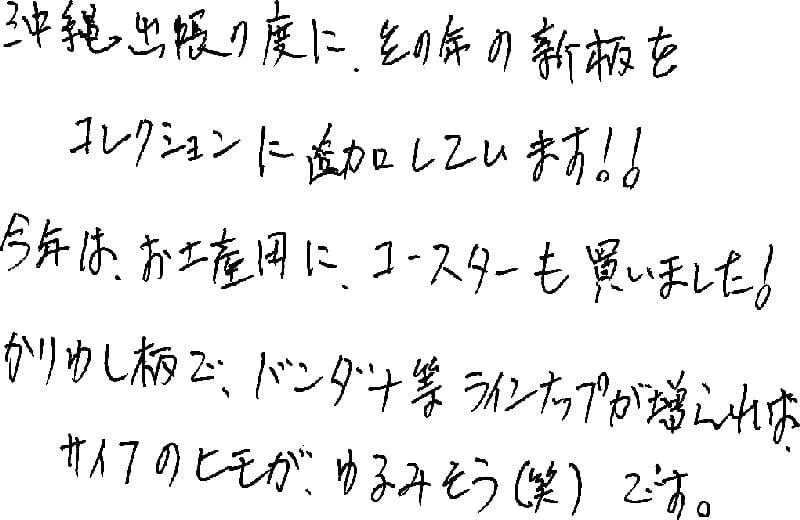 沖縄出張の度に、その年の新板を
コレクションに追加しています!!
今年は、お土産用に、コースターも買いました!
かりゆし柄で、バンダナ等ラインナップが増られば、
サイフのヒモが、ゆるみそう(笑)です。